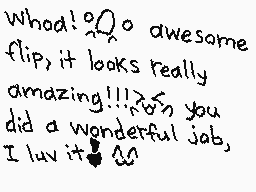 Whoa! °Ω° awesome
flip, it looks really
amazing!!! >^o^< you
did a wonderful job,
I luv it! ^^